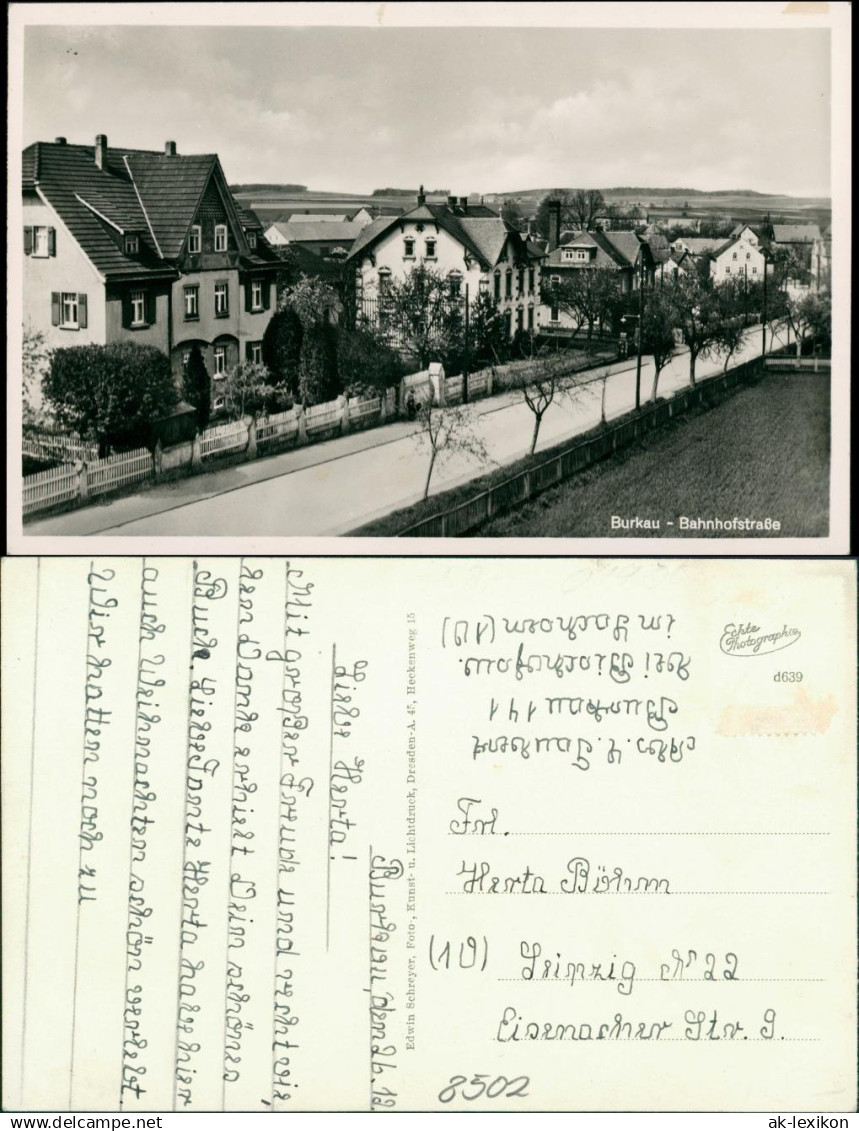 Burkau - Bahnhofstraße
Burkau, den 26. 12.
Liebe Herta!
Mit großer Freude und recht vie-
len Dank erhielt Dein schönes
Buch. Liebe Tante Herta habe hier
auch Weihnachten schön verlebt.
Wir hatten noch zu
Edwin Schreyer, Foto-, Kunst- u. Lichtdruck, Dresden-A. 45, Heckenweg 15
Abs. H. Taubert
Burkau 141
bei Bischofsw.
in Sachsen (10)
Echte
Photographie
d639
Frl.
Herta Böhm
(10) Leipzig N 22
Eisenacher Str. 9.
8502
ak-lexikon